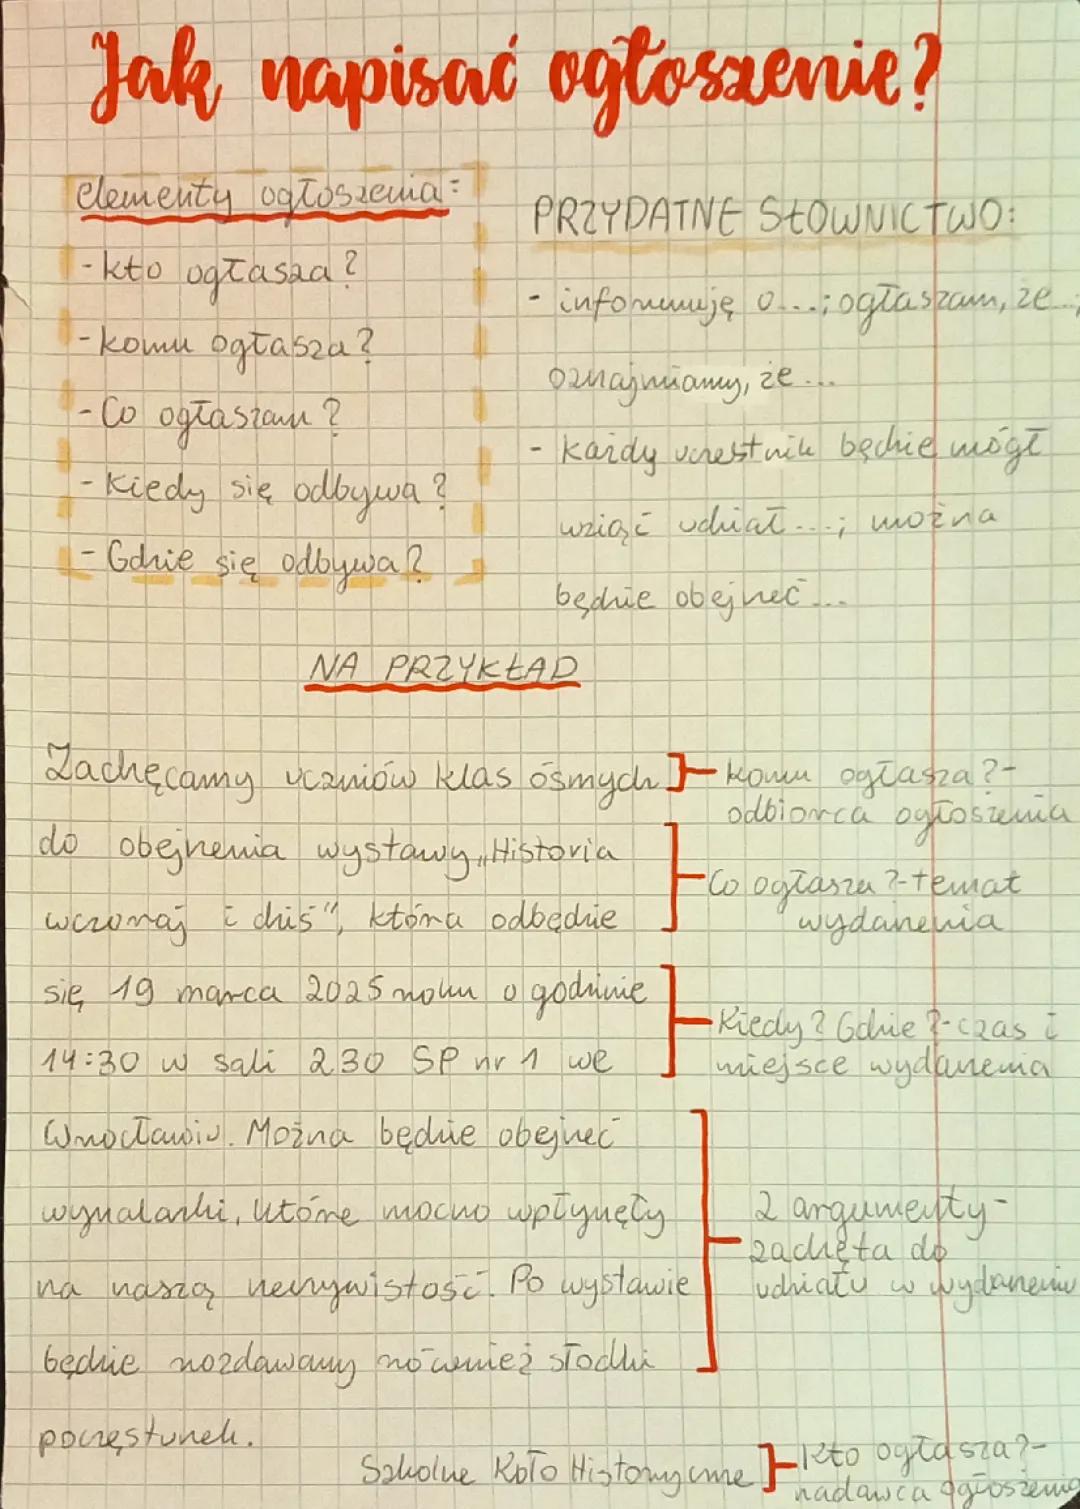 Jak napisać ogłoszenie?
Elementy ogłoszenia:
- kto ogłasza?
- komu ogłasza?
- Co ogłaszam?
- Kiedy się odbywa?
- Gdzie się odbywa?
PRZYDATNE SŁOWNICTWO:
- informuję o...; ogłaszam, że...;
oznajmiamy, że...
- każdy uczestnik będzie mógł
wziąć udział...; można
będzie obejrzeć...
NA PRZYKŁAD
Zachęcamy uczniów klas ósmych
do obejrzenia wystawy „Historia
wczoraj i dziś", która odbędzie
się 19 marca 2025 roku o godzinie
14:30 w sali 230 SP nr 1 we
Wrocławiu. Można będzie obejrzeć
wynalazki, które mocno wpłynęły
na naszą rzeczywistość. Po wystawie
będzie rozdawany również słodki
poczęstunek.
Szkolne Koło Historyczne
komu ogłasza?-
odbiorca ogłoszenia
Co ogłasza?-temat
wydarzenia
Kiedy? Gdzie?-czas i
miejsce wydarzenia
2 argumenty-
zachęta do
udziału w wydarzeniu
Kto ogłasza?-
nadawca ogłoszenia